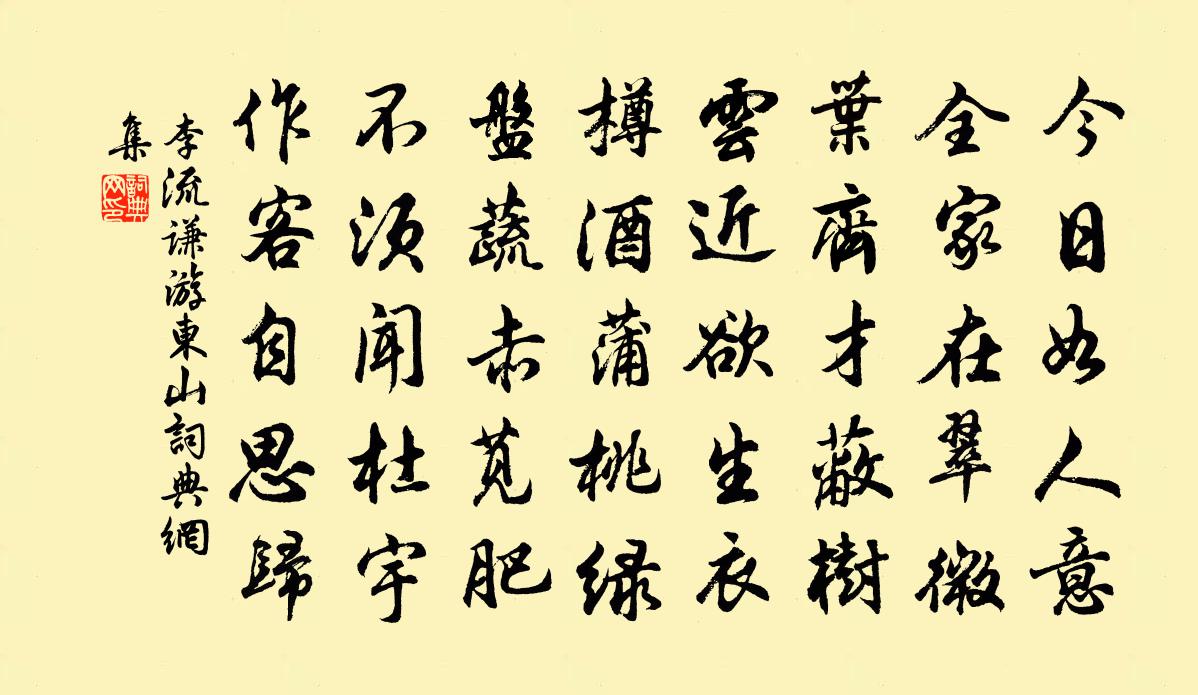 今日如人意
全家在翠微
葉齊才蔽樹
雲近欲生衣
樽酒蒲桃緑
盤蔬赤莧肥
不須聞杜宇
作客自思歸
李流谦游東山詞典網
集
詞典
网印